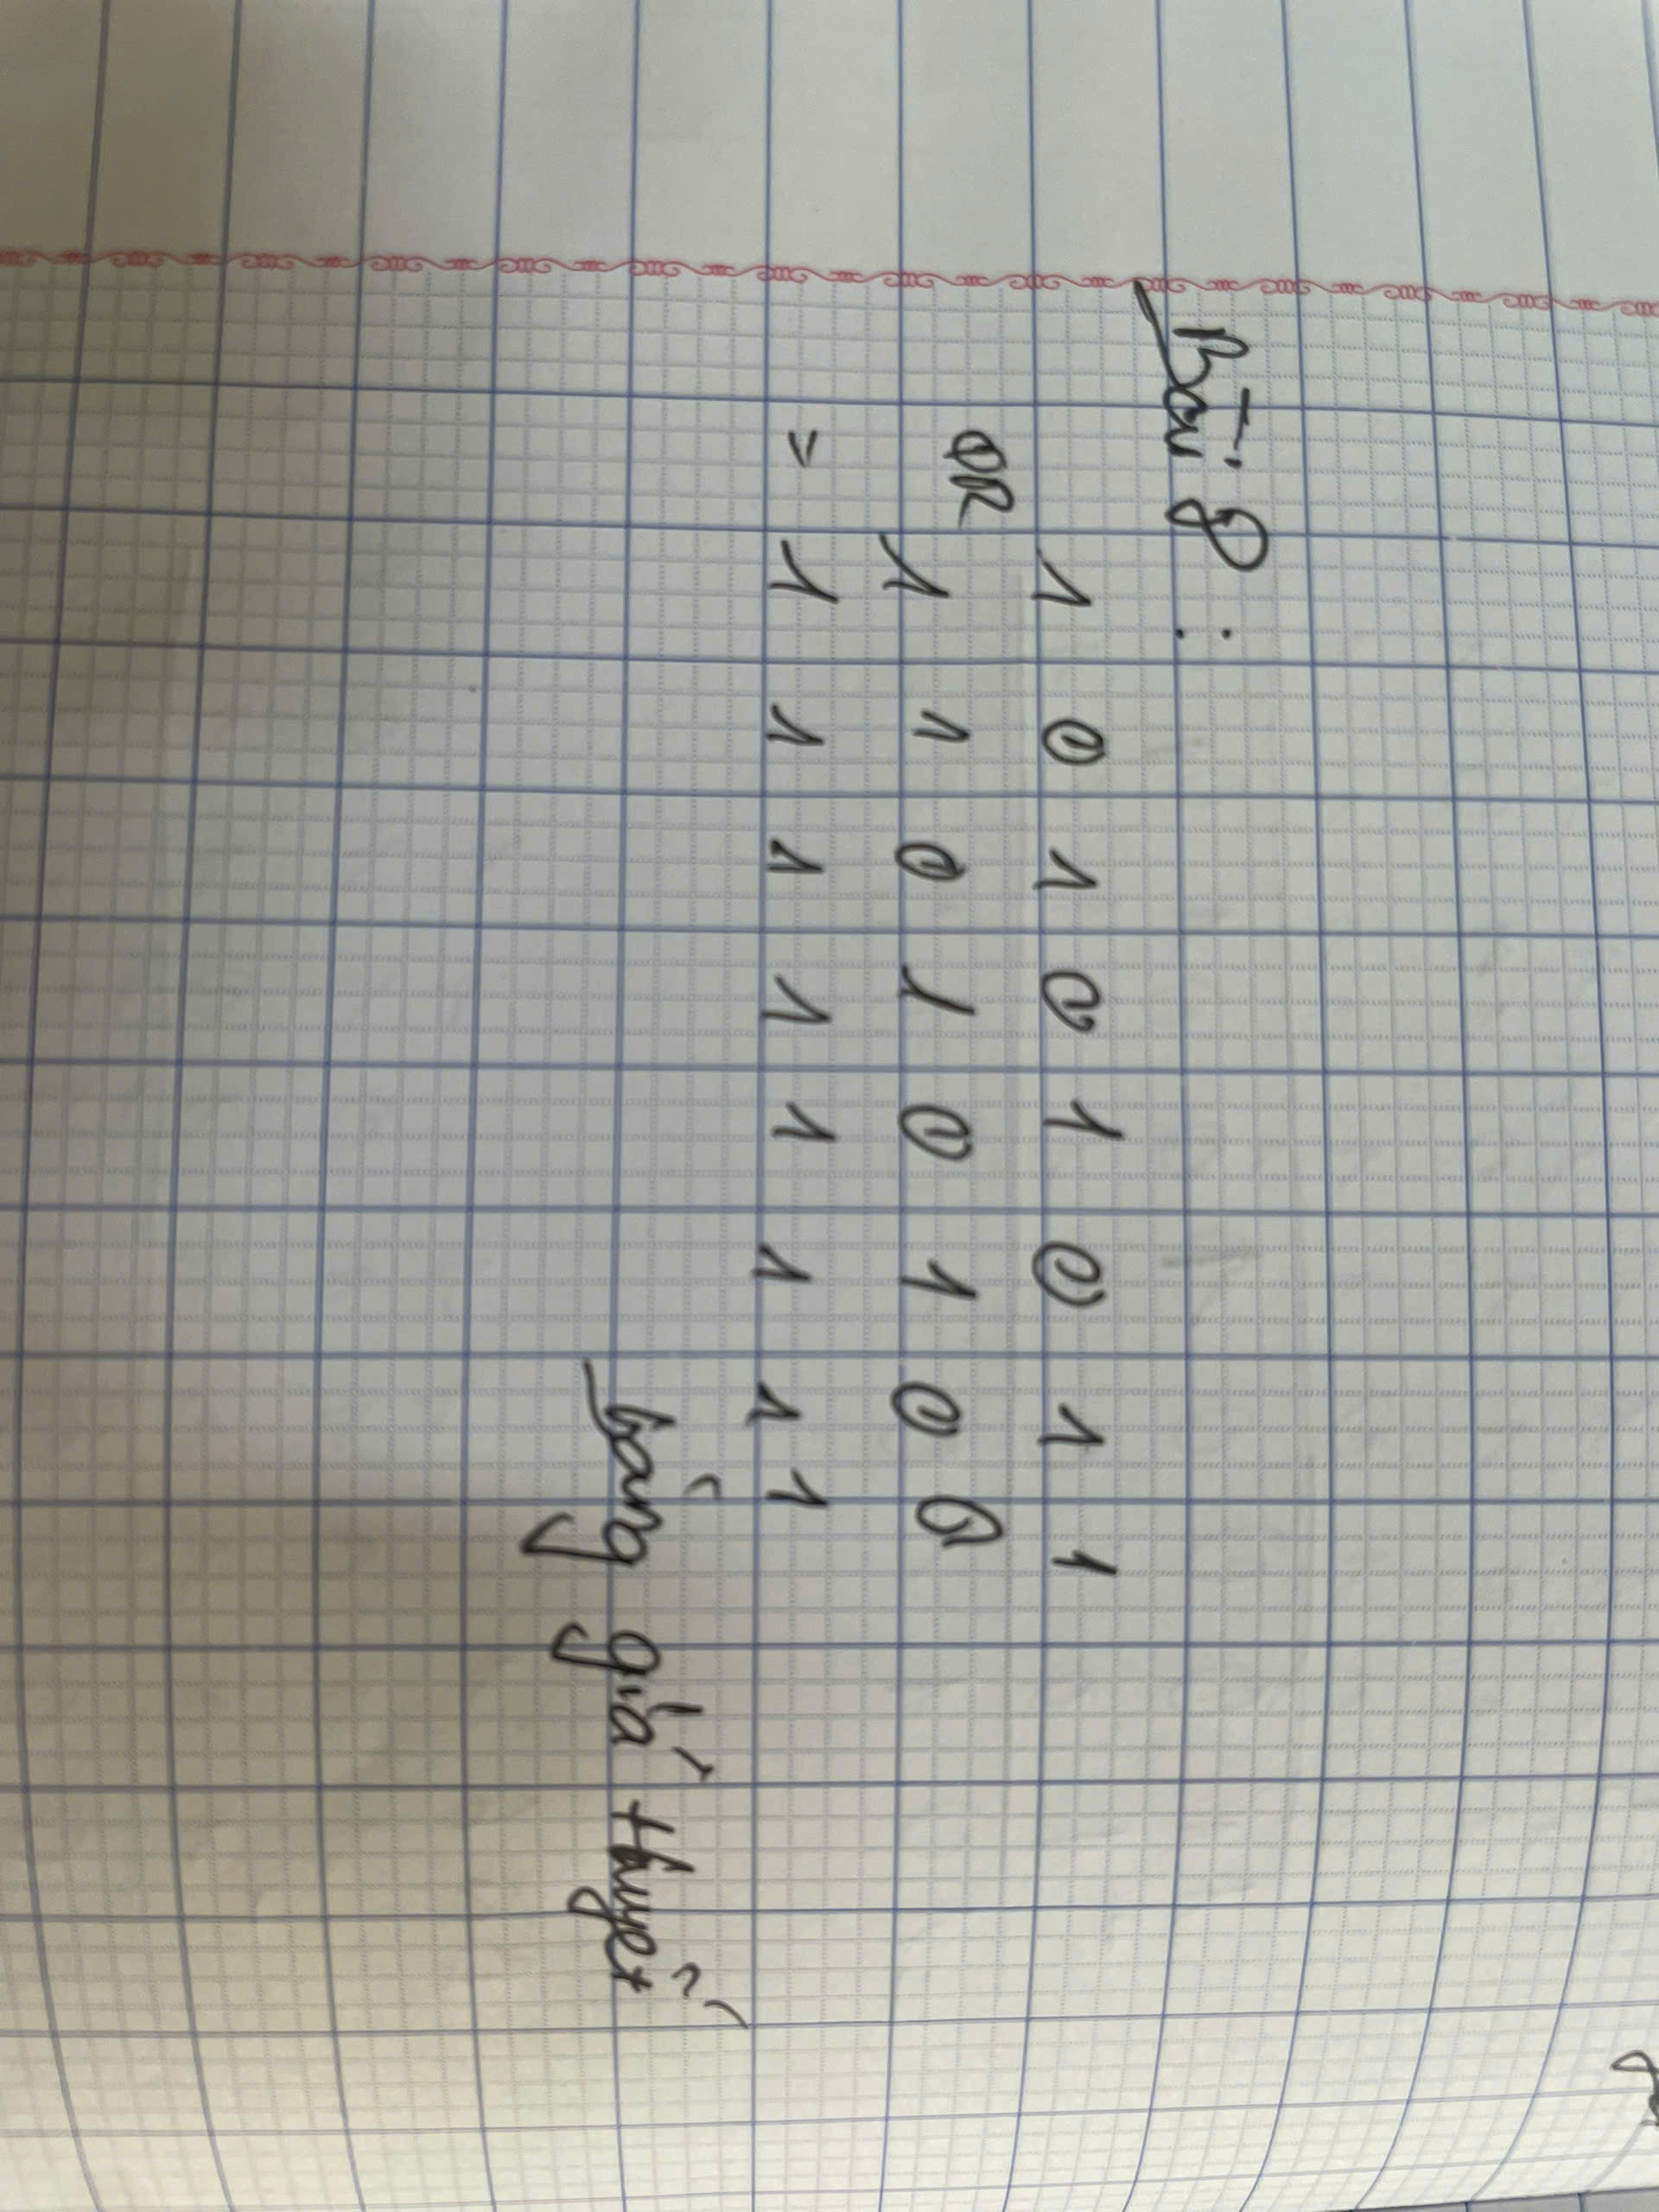 Bài 8 :
1 0 1 0 1 0 1 1
OR 1 1 0 1 0 1 0 0
= 1 1 1 1 1 1 1 1
bằng giả thuyết